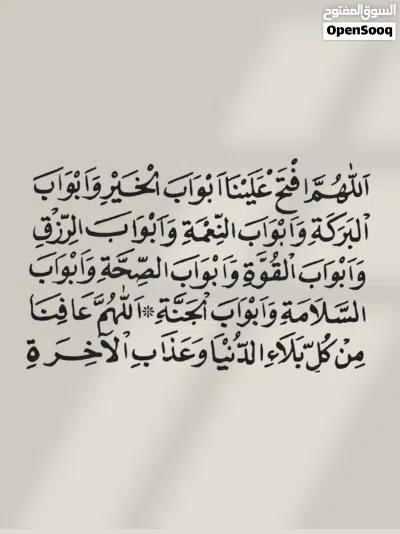 السوق المفتوح
OpenSooq
اَللّٰهُمَّ افْتَحْ عَلَيْنَا اَبْوَابَ الْخَيْرِ وَاَبْوَابَ
الْبَرَكَةِ وَاَبْوَابَ النِّعْمَةِ وَاَبْوَابَ الرِّزْقِ
وَاَبْوَابَ الْقُوَّةِ وَاَبْوَابَ الصِّحَّةِ وَاَبْوَابَ
السَّلَامَةِ وَاَبْوَابَ الْجَنَّةِ * اَللّٰهُمَّ عَافِنَا
مِنْ كُلِّ بَلَاءِ الدُّنْيَا وَعَذَابِ الْاٰخِرَةِ